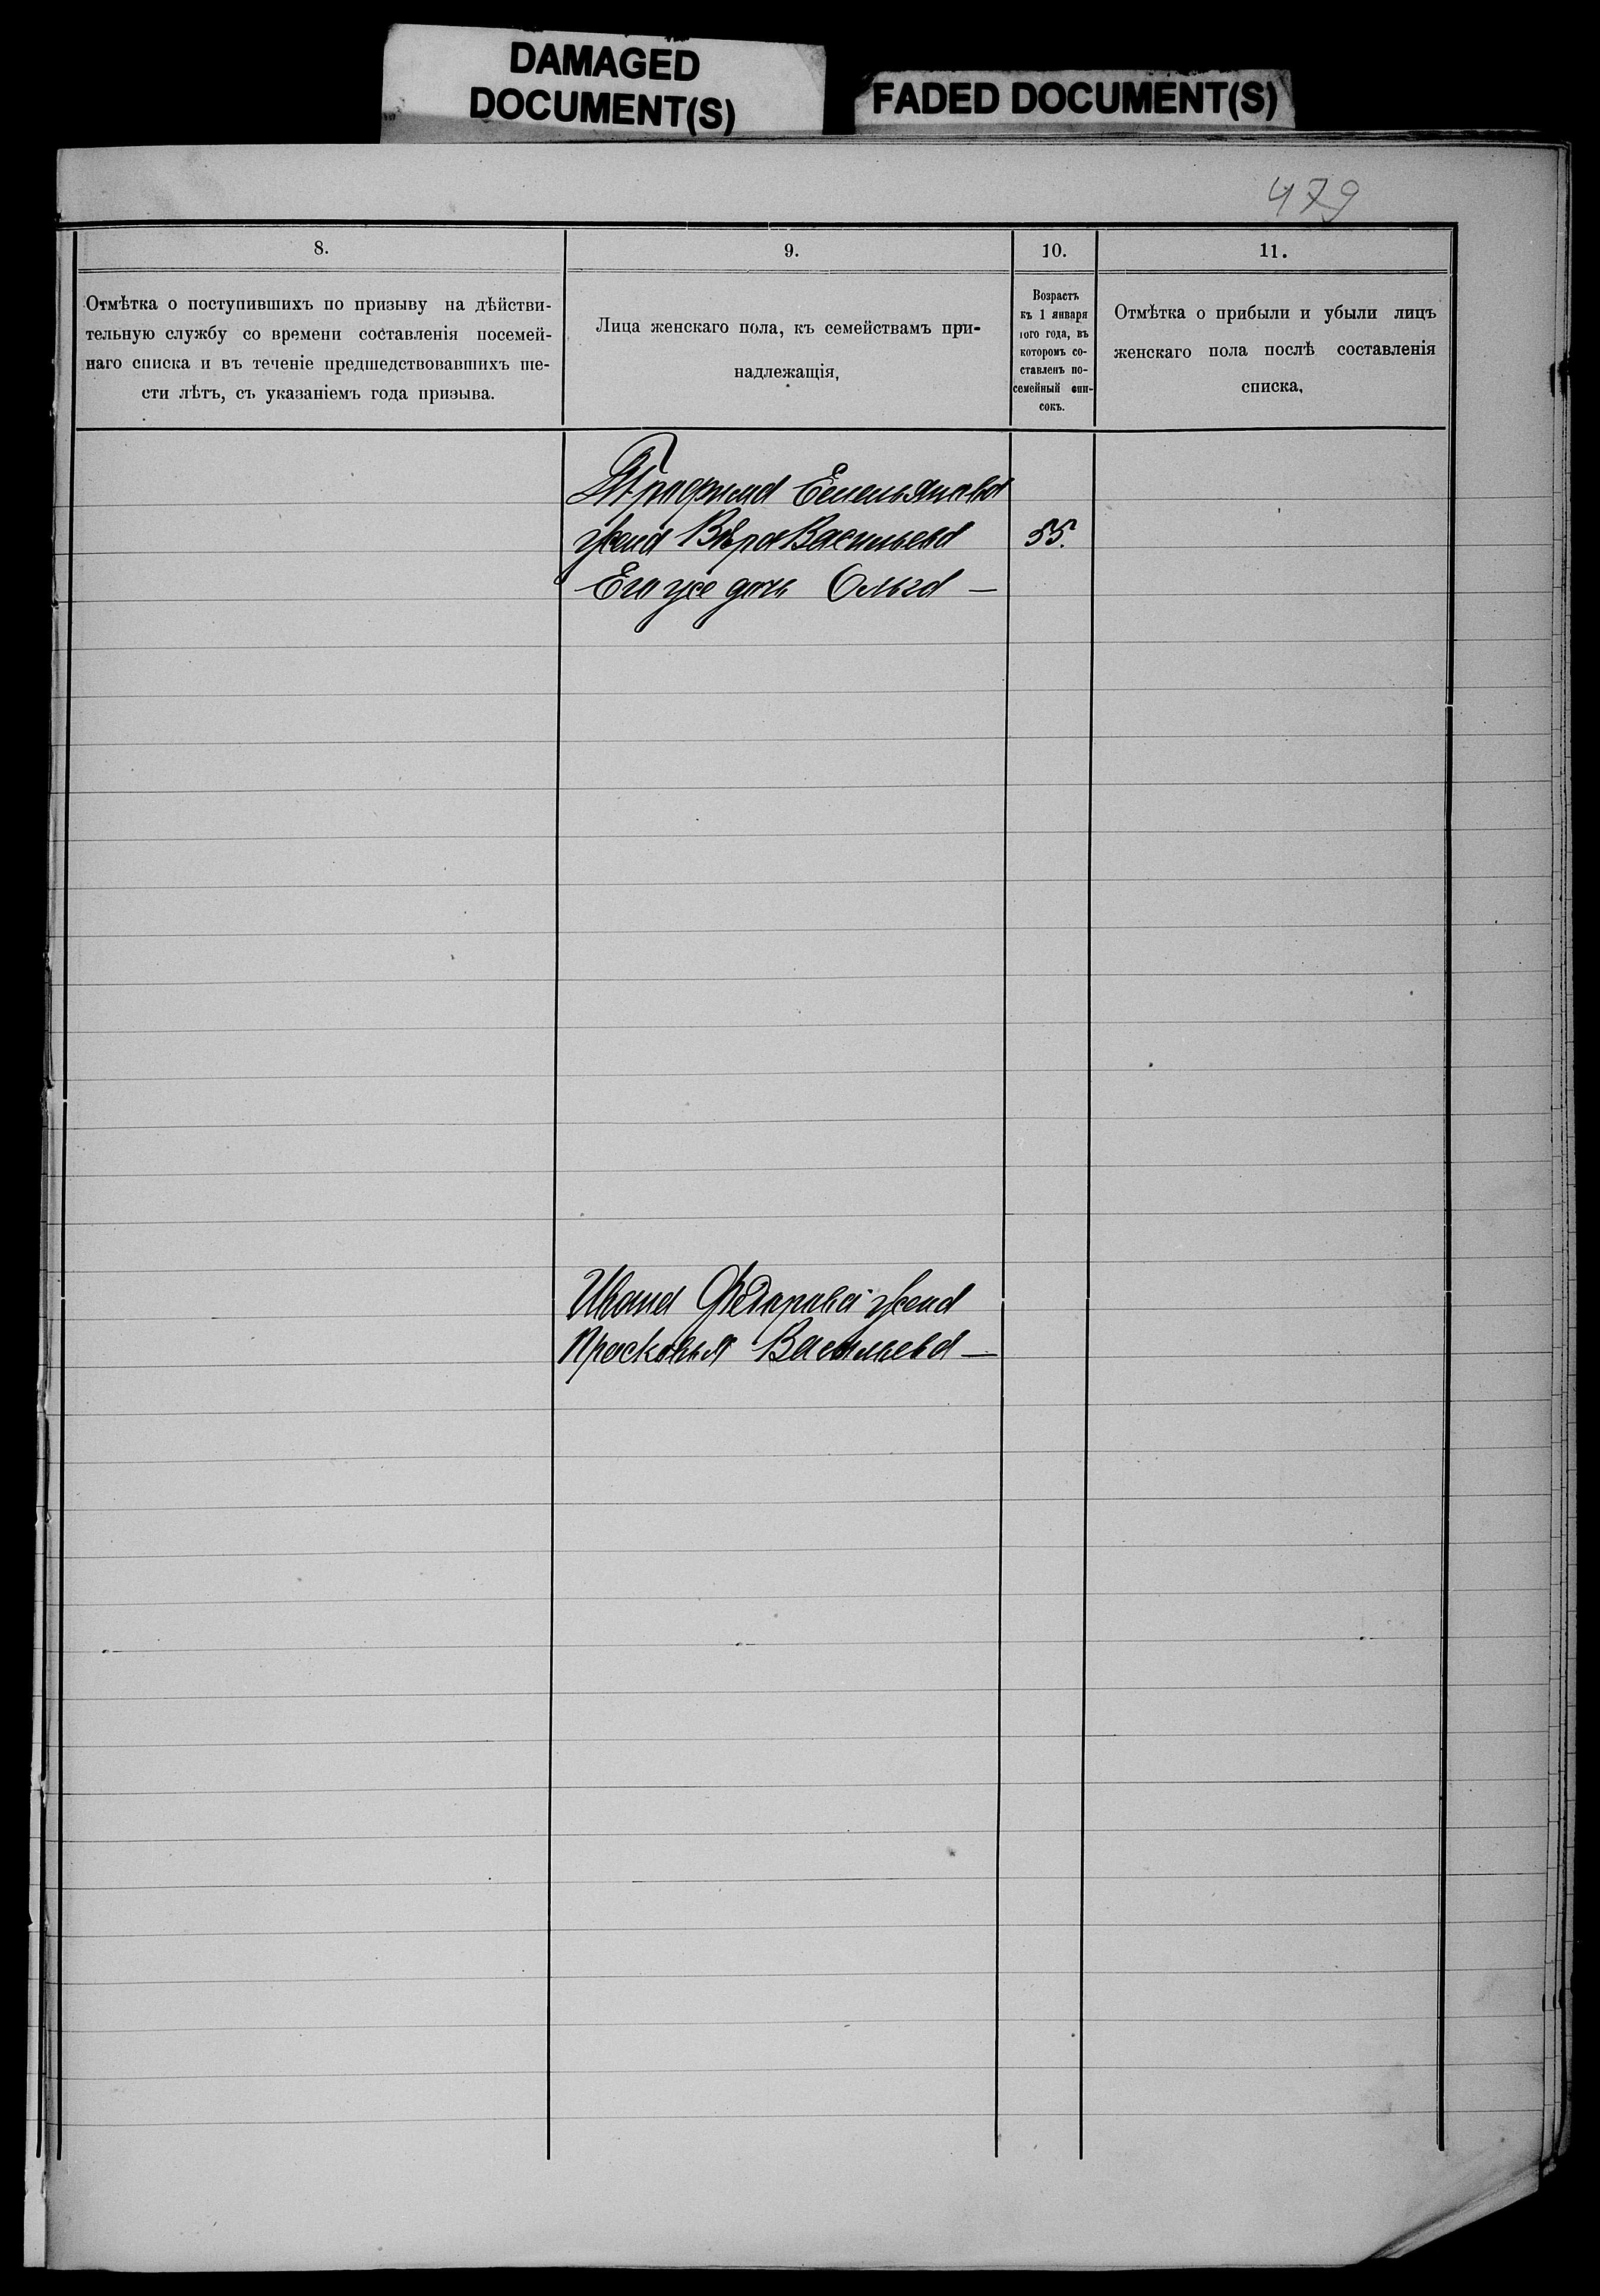 DAMAGED
DOCUMENT(S)
FADED DOCUMENT(S)
479
8.
9.
10.
11.
Отмѣтка о поступившихъ по призыву на дѣйстви-
тельную службу со времени составленія посемей-
наго списка и въ теченіе предшедствовавшихъ ше-
сти лѣтъ, съ указаніемъ года призыва.
Лица женскаго пола, къ семействамъ при-
надлежащія,
Возрастъ
къ 1 января
того года, въ
которомъ со-
ставленъ по-
семейный спи-
сокъ.
Отмѣтка о прибыли и убыли лицъ
женскаго пола послѣ составленія
списка,
Трофима Емельянова
жена Вѣра Васильева 55.
Его же дочь Ольга —
Ивана Федорова жена
Прасковья Васильева —